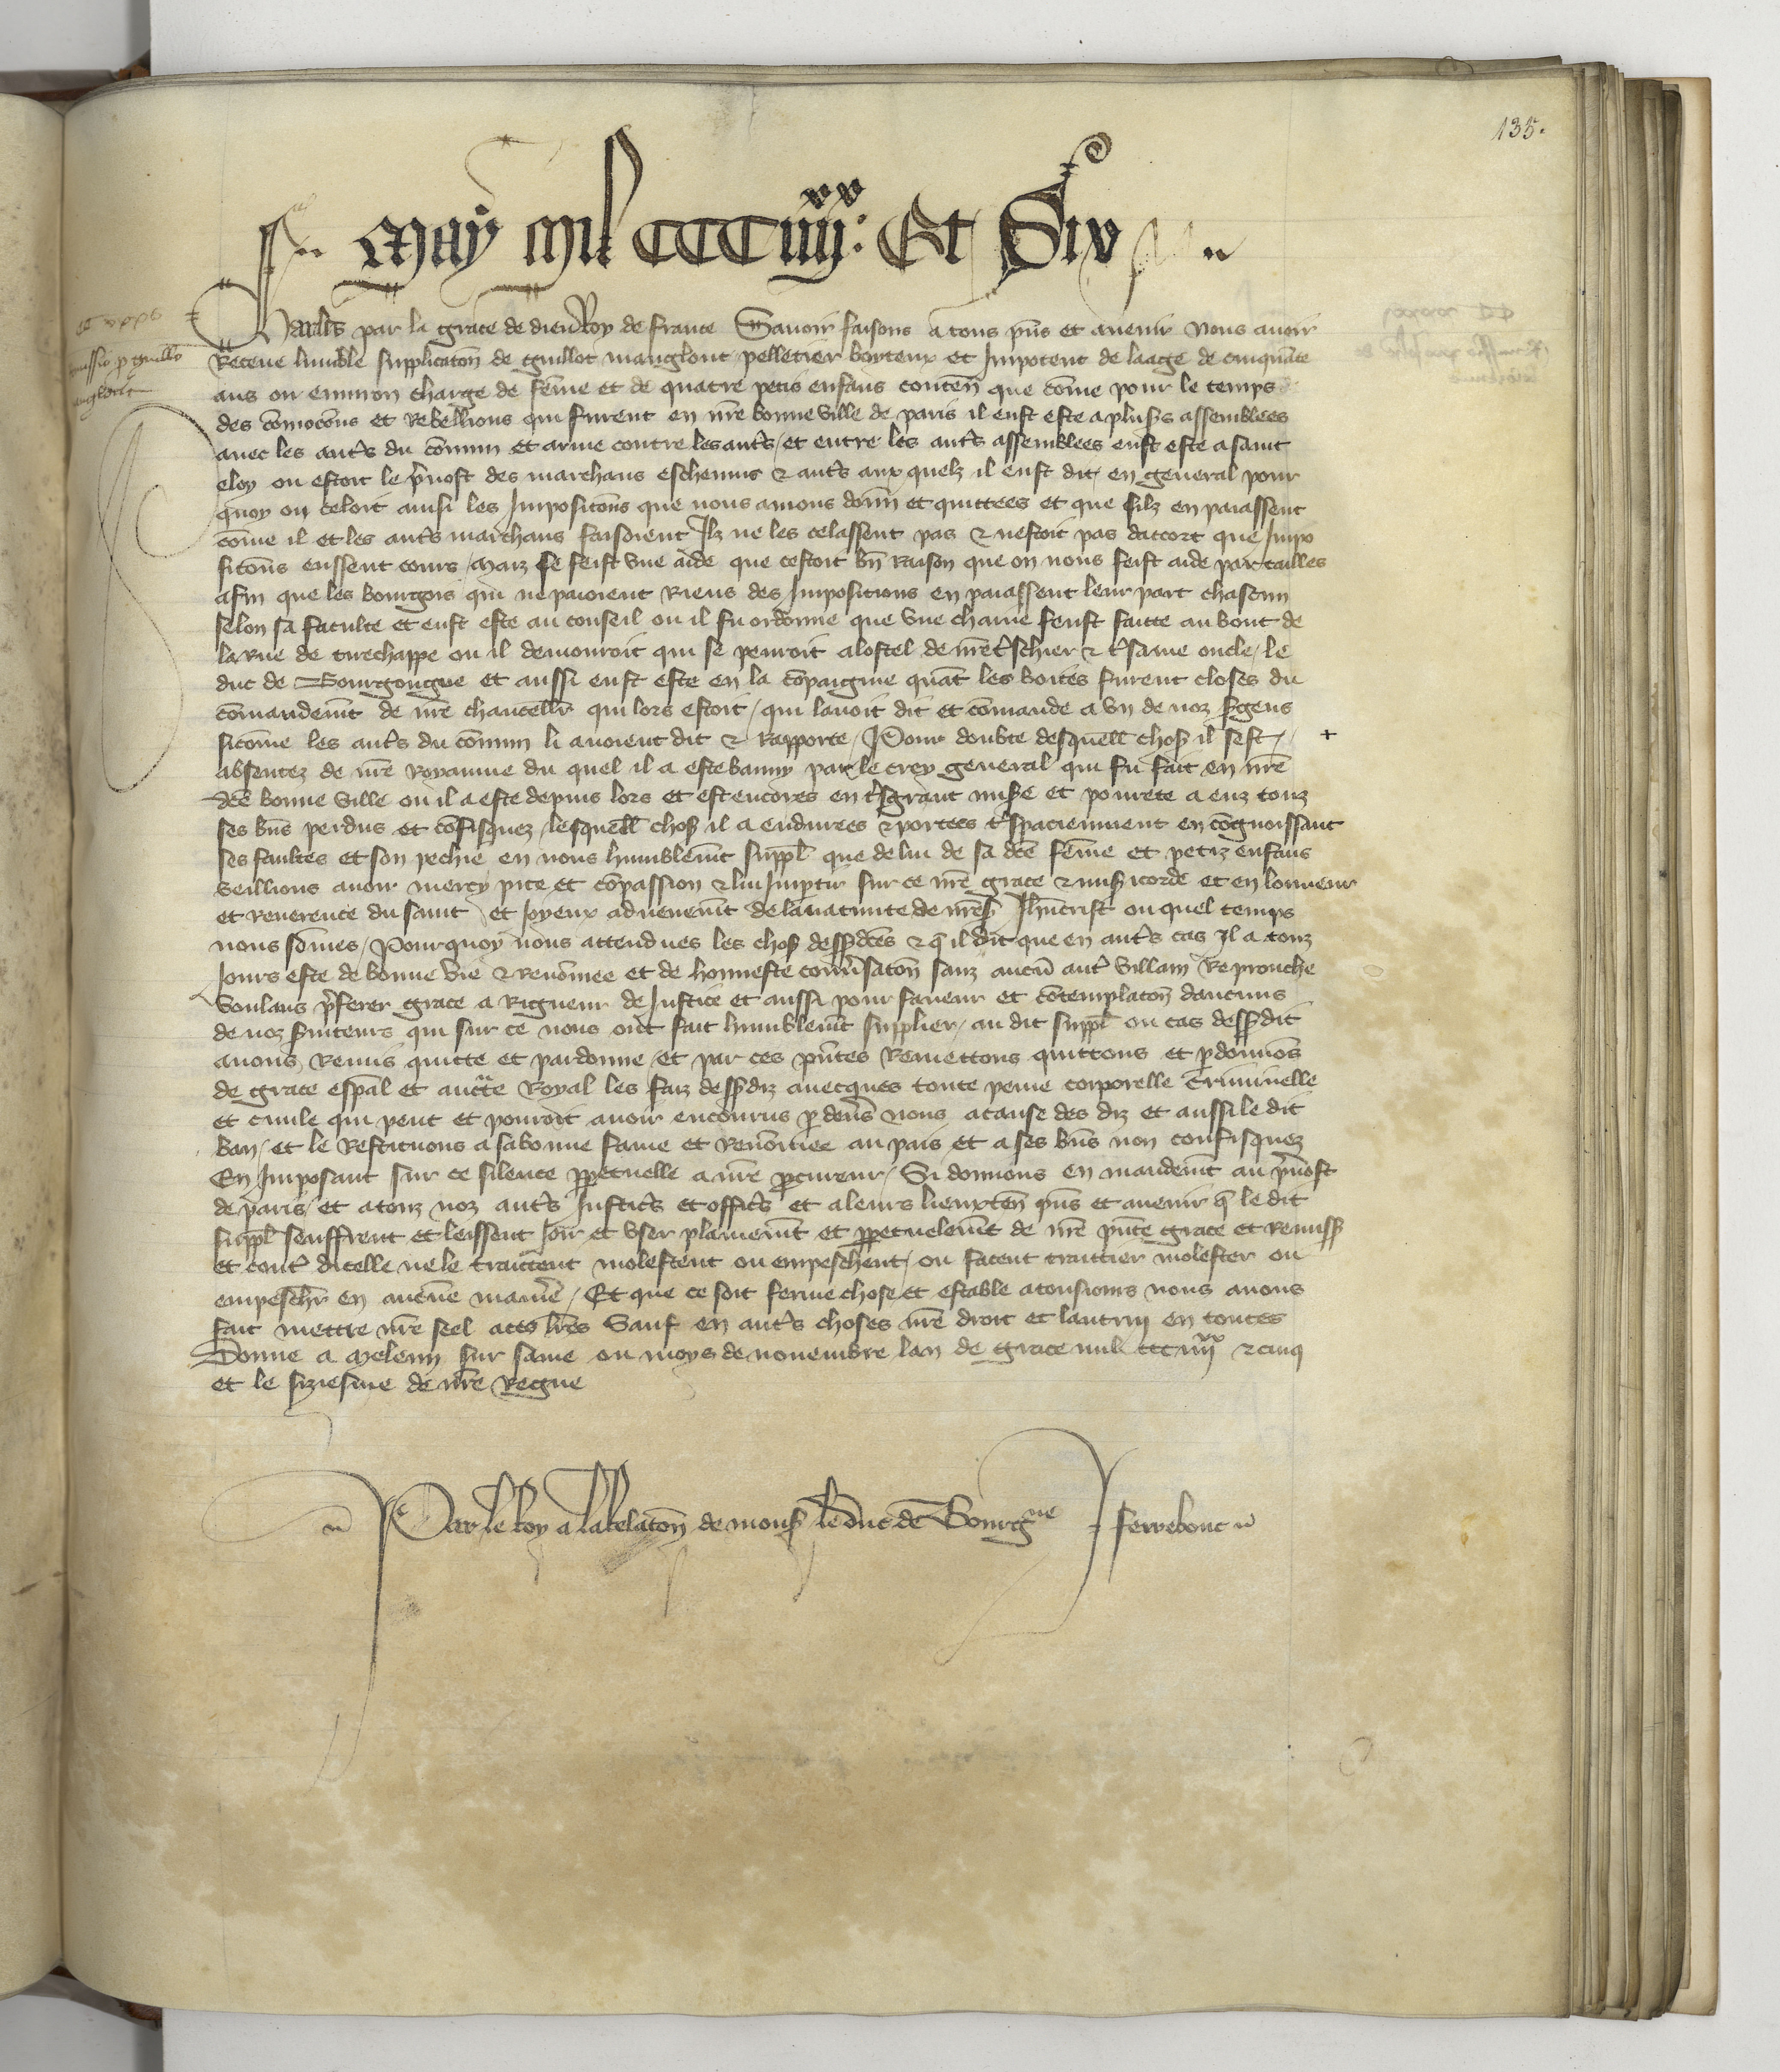 135.
May mil CCC iiij xx : Et Six
Charles par la grace de dieu Roy de france Savoir faisons a tous pñs et avenir Nous avoir
Receue lumble supplicacõn de guillot mauglout pelletier boyteux et Impotent de laage de cinquãte
ans ou environ charge de fẽme et de quatre petis enfans contenñ que cõme pour le temps
des cõmocõns et Rebellions qui furent en nr̃e bonne ville de paris il eust este a plus̃s assemblees
avec les aut̃s du cõmun et arme contre les aut̃s / et entre les aut̃s assemblees eust este a saint
eloy ou estoit le p̃vost des marchans eschevins & aut̃s aux quelz il eust dit en general pour
quoy on celoit ainsi les Imposicõns que nous avions dõnñ et quittees et que silz en paiassent
cõme il et les aut̃s marchans faisoient Ilz ne les celassent pas & nestoit pas daccort que Impo
sicõns eussent cours / maiz se feist une aide que cestoit bñ Raison que on nous feist aide par tailles
afin que les bourgois qui ne paioient Riens des Imposicions en paiassent leur part chascun
selon sa faculte et eust este au conseil ou il fu ordonne que une chaine feust faitte au bout de
la Rue de tirechappe ou il demouroit qui se penroit a lostel de nr̃e t̃schier & t̃same oncle / le
duc de Bourgongne et aussi eust este en la cõpaignie quãt les boites furent closes du
cõmandemt̃ de nr̃e chancellr̃ qui lors estoit / qui lavoit dit et cõmande a un de noz s̃gens
sicõme les aut̃s du cõmun li avoient dit & Rapporte / Pour doubte desquell̃ chos̃ il sest +
absentez de nr̃e Royaume du quel il a este banny par le cry general qui fu fait en nr̃e
dc̃e bonne ville ou il a este depuis lors et est encores en t̃sgrant mis̃e et povrete a euz touz
ses bñs perdus et cõfisquez / lesquell̃ chos̃ il a endurees & portees t̃spaciemment en cõgnoissant
ses faultes et son pechie en nous humblemt̃ suppl̃ que de lui de sa dc̃e fẽme et petiz enfans
veillions avoir mercy pite et cõpassion & lui Imp̃tir sur ce nr̃e grace & mis̃icorde et en lonneur
et Reverence du saint et Joyeux advenemt̃ de la nativite de nr̃es̃ Jhũcrist ou quel temps
nous sõmes / Pourquoy nous attendues les chos̃ dess̃dc̃es & q̃ il dit que en aut̃s cas Il a touz
Jours este de bonne vie & Renõmee et de honneste conṽsacõn sanz aucũ aut̃ villain Reprouche
Voulans p̃ferer grace a Rigueur de Justice et aussi pour faveur et cõtemplacõn daucuns
de noz s̃viteurs qui sur ce nous ont fait humblemt̃ supplier / au dit suppl̃ ou cas dess̃dit
avons Remis quitte et pardonne et par ces pñtes Remettons quittons et p̃donnõs
de grace esp̃al et auct̃te Royal les faiz dess̃diz avecques toute peine corporelle Criminelle
et civile qui peut et pourroit avoir encourus p̃ deṽs nous a cause des diz et aussi le dit
ban / et le Restituons a sa bonne fame et Renõmee au pais et a ses bñs non confisquez
En Imposant sur ce silence p̃petuelle a nr̃e p̃cureur / Si donnons en mandemt̃ au p̃vost
de paris / et a touz noz aut̃s Justic̃s et offic̃s et a leurs lieuxtẽn pñs et avenir q̃ le dit
suppl̃ seuffrent et leissent Joir et user plainemt̃ et p̃petuelemt̃ de nr̃e pñte grace et Remiss̃
et cont̃ dicelle ne le traittent molestent ou empeschent / ou facent traittier molester ou
empeschr̃ en aucũe maniẽ / Et que ce soit ferme chose et estable a tousiours nous avons
fait mettre nr̃e seel a ces lr̃es Sauf en aut̃s choses nr̃e droit et lautruy en toutes
Donne a Meleun sur saine ou moys de novembre lan de grace mil ccc iiij xx & cinq
et le siziesme de nr̃e Regne
Par le Roy a la Relacõn de mons̃ le duc de Bourgne ferrebouc